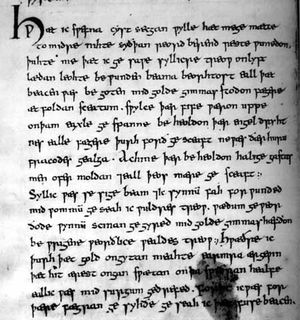 Hwæt ic swefna cyst secgan wylle hæt mege mætte
to midre nihte syðþan reord berend reste wunedon.
þuhte me þæt ic ge sawe syllicre treow onlyft
lædan leohte be wunden beama beorhtost eall þæt
beacen wæs be goten mid golde gimmas stodon fægere
æt foldan sceatum. swylce þær fife wæron uppe
onþam eaxle ge spanne be heoldon þær engel dryht
nes ealle fægere þurh forð ge sceaft ne wæs ðær huru
fracodes gealga. Ac hine þær be heoldon halige gastas
men ofer moldan 7 eall þeos mære ge sceaft :
Syllic wæs se sige beam 7 ic synnum fah for wunded
mid wommum ge seah ic wuldres treow. wædum ge weor
ðode wynnum scinan ge gyred mid golde gimmas hæfdon
be wrigene weorðlice wealdes treow. hwæðre ic
þurh þæt gold ongytan meahte earmra ærgewin
þæt hit ærest ongan swætan on þa swiðran healfe
eall ic wæs mid surgum gedrefed. forht ic wæs for
þære fægran ge syhðe ge seah ic þæt fuse beacen.